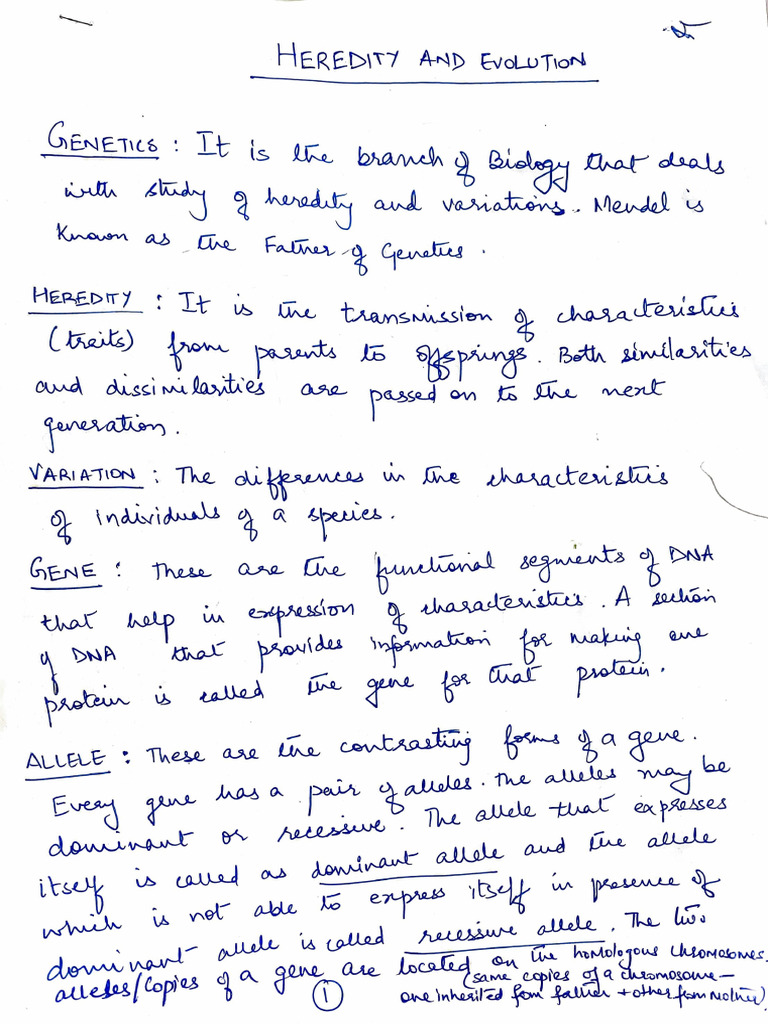 HEREDITY AND EVOLUTION
GENETICS : It is the branch of Biology that deals
with study of heredity and variations. Mendel is
known as the Father of Genetics.
HEREDITY : It is the transmission of characteristics
(traits) from parents to offsprings. Both similarities
and dissimilarities are passed on to the next
generation.
VARIATION : The differences in the characteristics
of individuals of a species.
GENE : These are the functional segments of DNA
that help in expression of characteristics. A section
of DNA that provides information for making one
protein is called the gene for that protein.
ALLELE : These are the contrasting forms of a gene.
Every gene has a pair of alleles. The alleles may be
dominant or recessive. The allele that expresses
itself is called as dominant allele and the allele
which is not able to express itself in presence of
dominant allele is called recessive allele. The two
alleles/copies of a gene are located on the homologous chromosomes.
(same copies of a chromosome—
one inherited from father + other from mother)
1